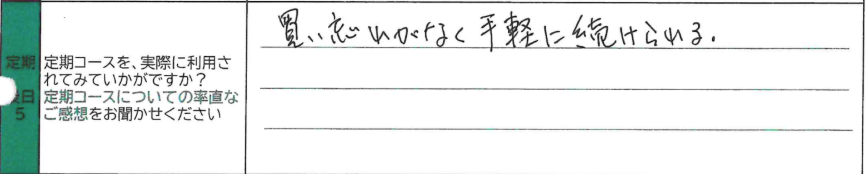 買い忘れがなく手軽に続けられる.
定期
後日
5
定期コースを、実際に利用さ
れてみていかがですか？
定期コースについての率直な
ご感想をお聞かせください